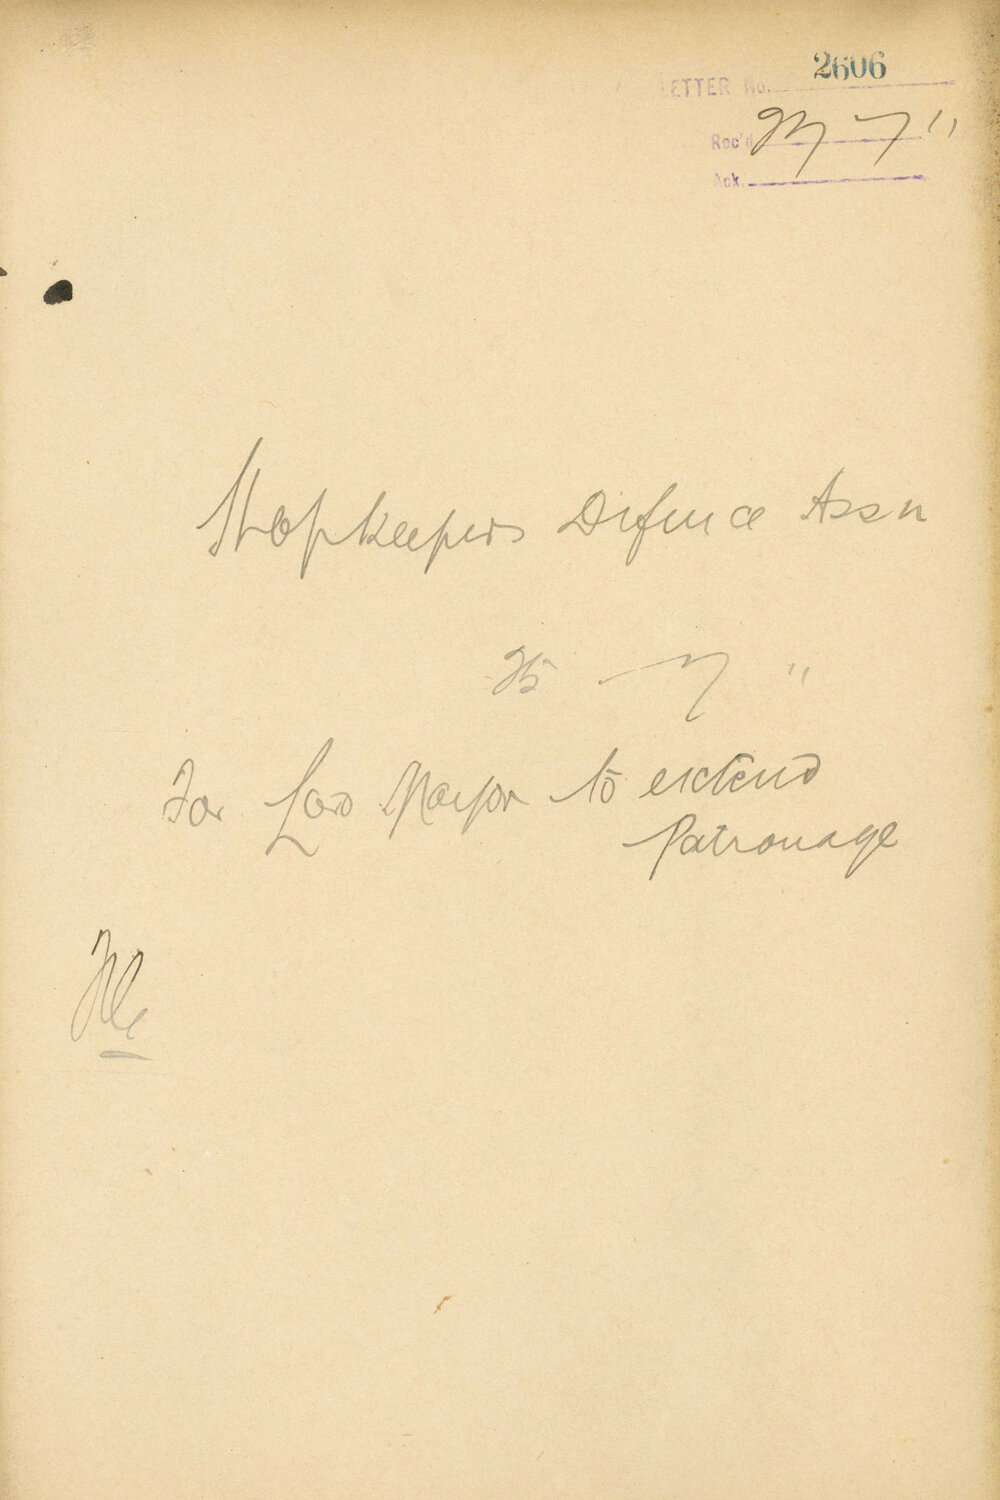 LETTER No. 2606
Rec'd 27 7 11
Ack.
Shopkeepers Defence Assn
25 7 11
For Lord Mayor to extend
Patronage
File